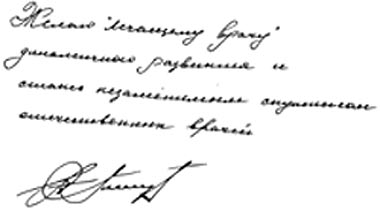 Желаю "Лечащему врачу"
динамичного развития и
стать незаменимым спутником
отечественных врачей